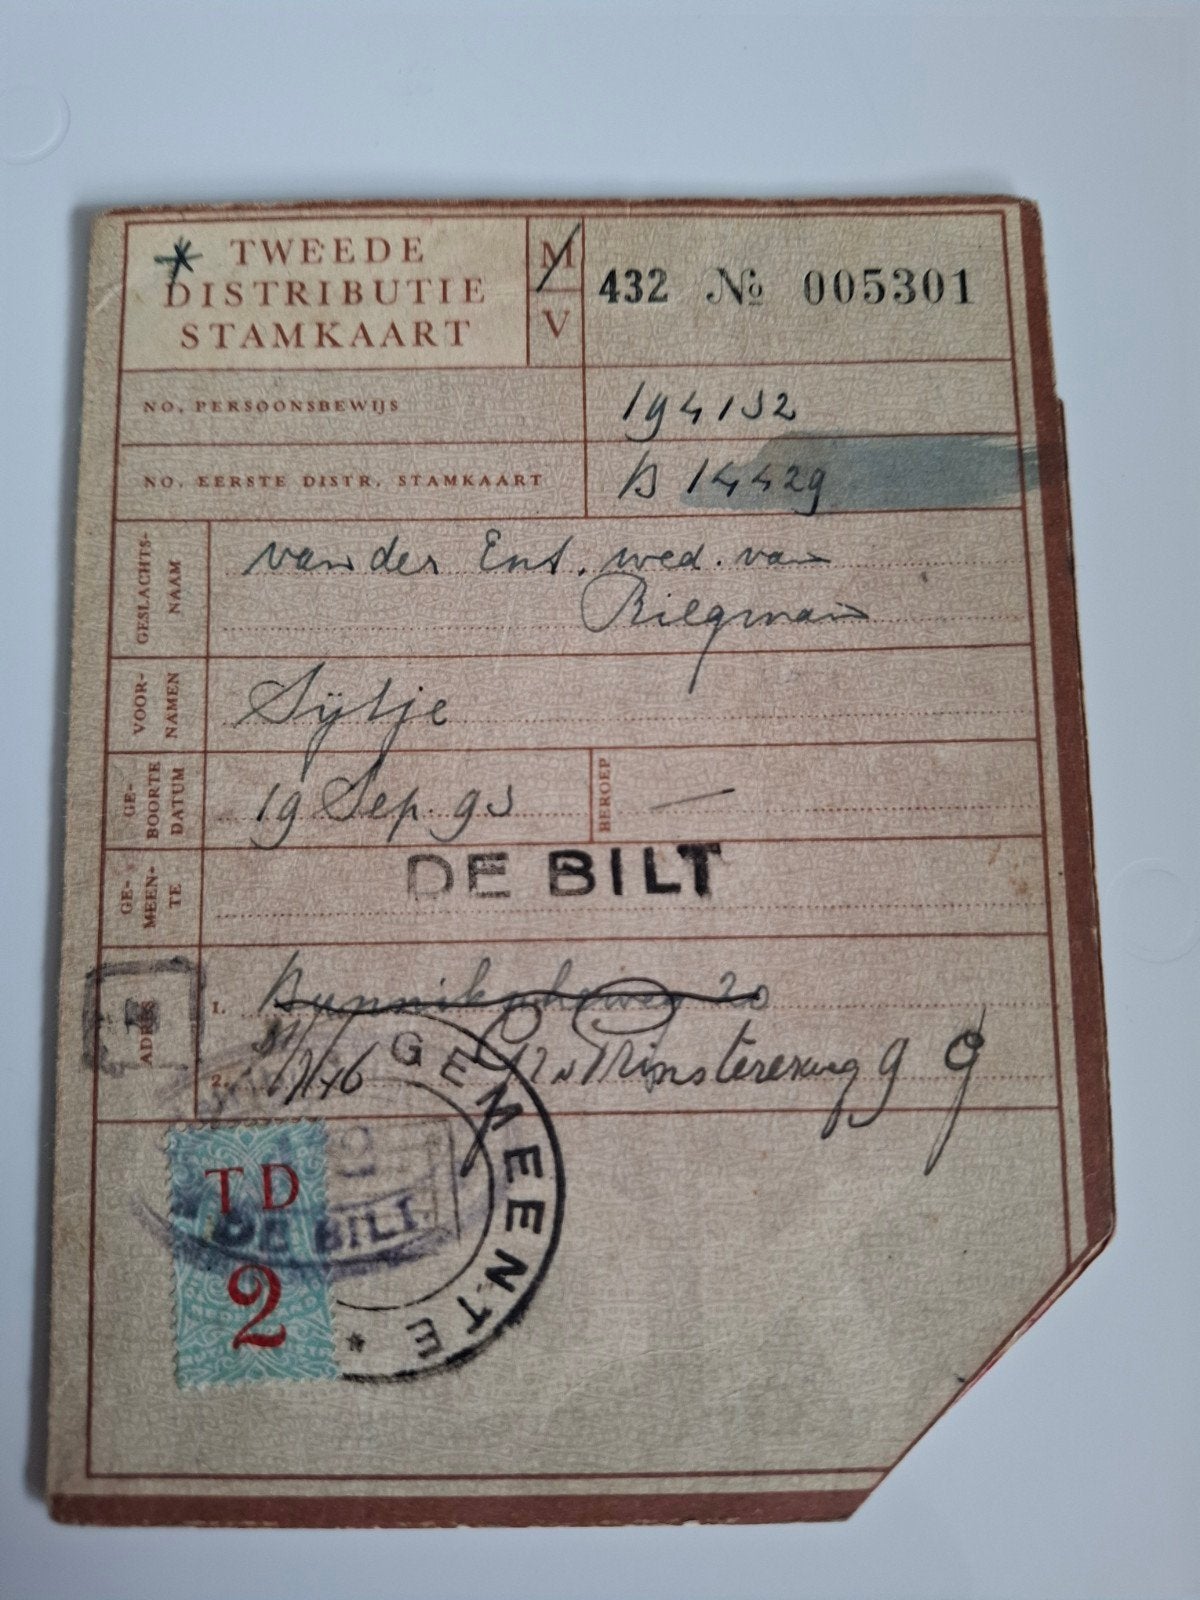 * TWEEDE
DISTRIBUTIE
STAMKAART
M
V
432 No 005301
NO. PERSOONSBEWIJS
194132
NO. EERSTE DISTR. STAMKAART
B 14429
GESLACHTS-
NAAM
van der Ent. wed. van
VOOR-
NAMEN
Sijtje
GE-
BOORTE
DATUM
19 Sep. 93
BEROEP
—
GE-
MEEN-
TE
DE BILT
ADRES
1.
Bunnikscheweg 20
2.
9
GEMEENTE *
TD
DE BILT
2